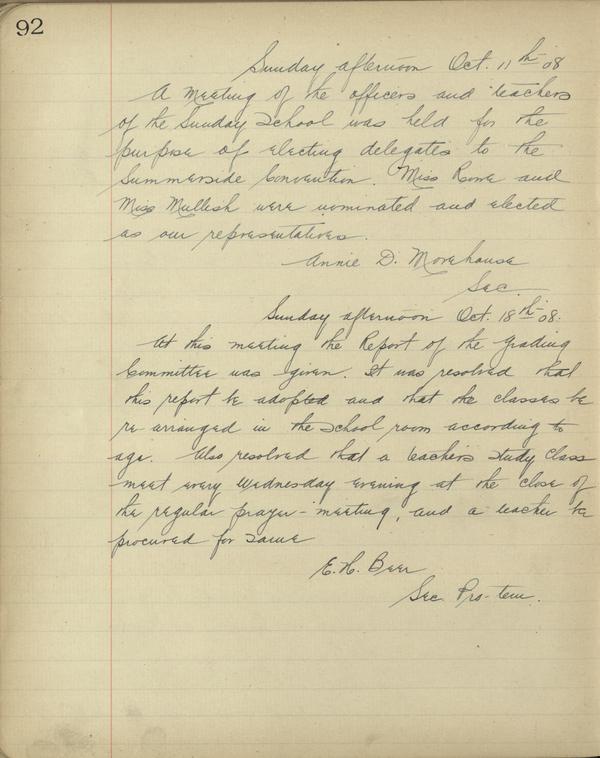 92
Sunday afternoon Oct. 11th 08
A Meeting of the officers and teachers
of the Sunday School was held for the
purpose of electing delegates to the
Summerside Convention. Miss Rowe and
Miss Mullish were nominated and elected
as our representatives.
Annie D. Morehouse
Sec.
Sunday afternoon Oct. 18th 08.
At this meeting the Report of the Grading
Committee was given. It was resolved that
this report be adopted and that the classes be
re-arranged in the School room according to
age. Also resolved that a teachers study class
meet every Wednesday evening at the close of
the regular prayer-meeting, and a teacher be
procured for same
E. H. Beer
Sec. Pro-tem.